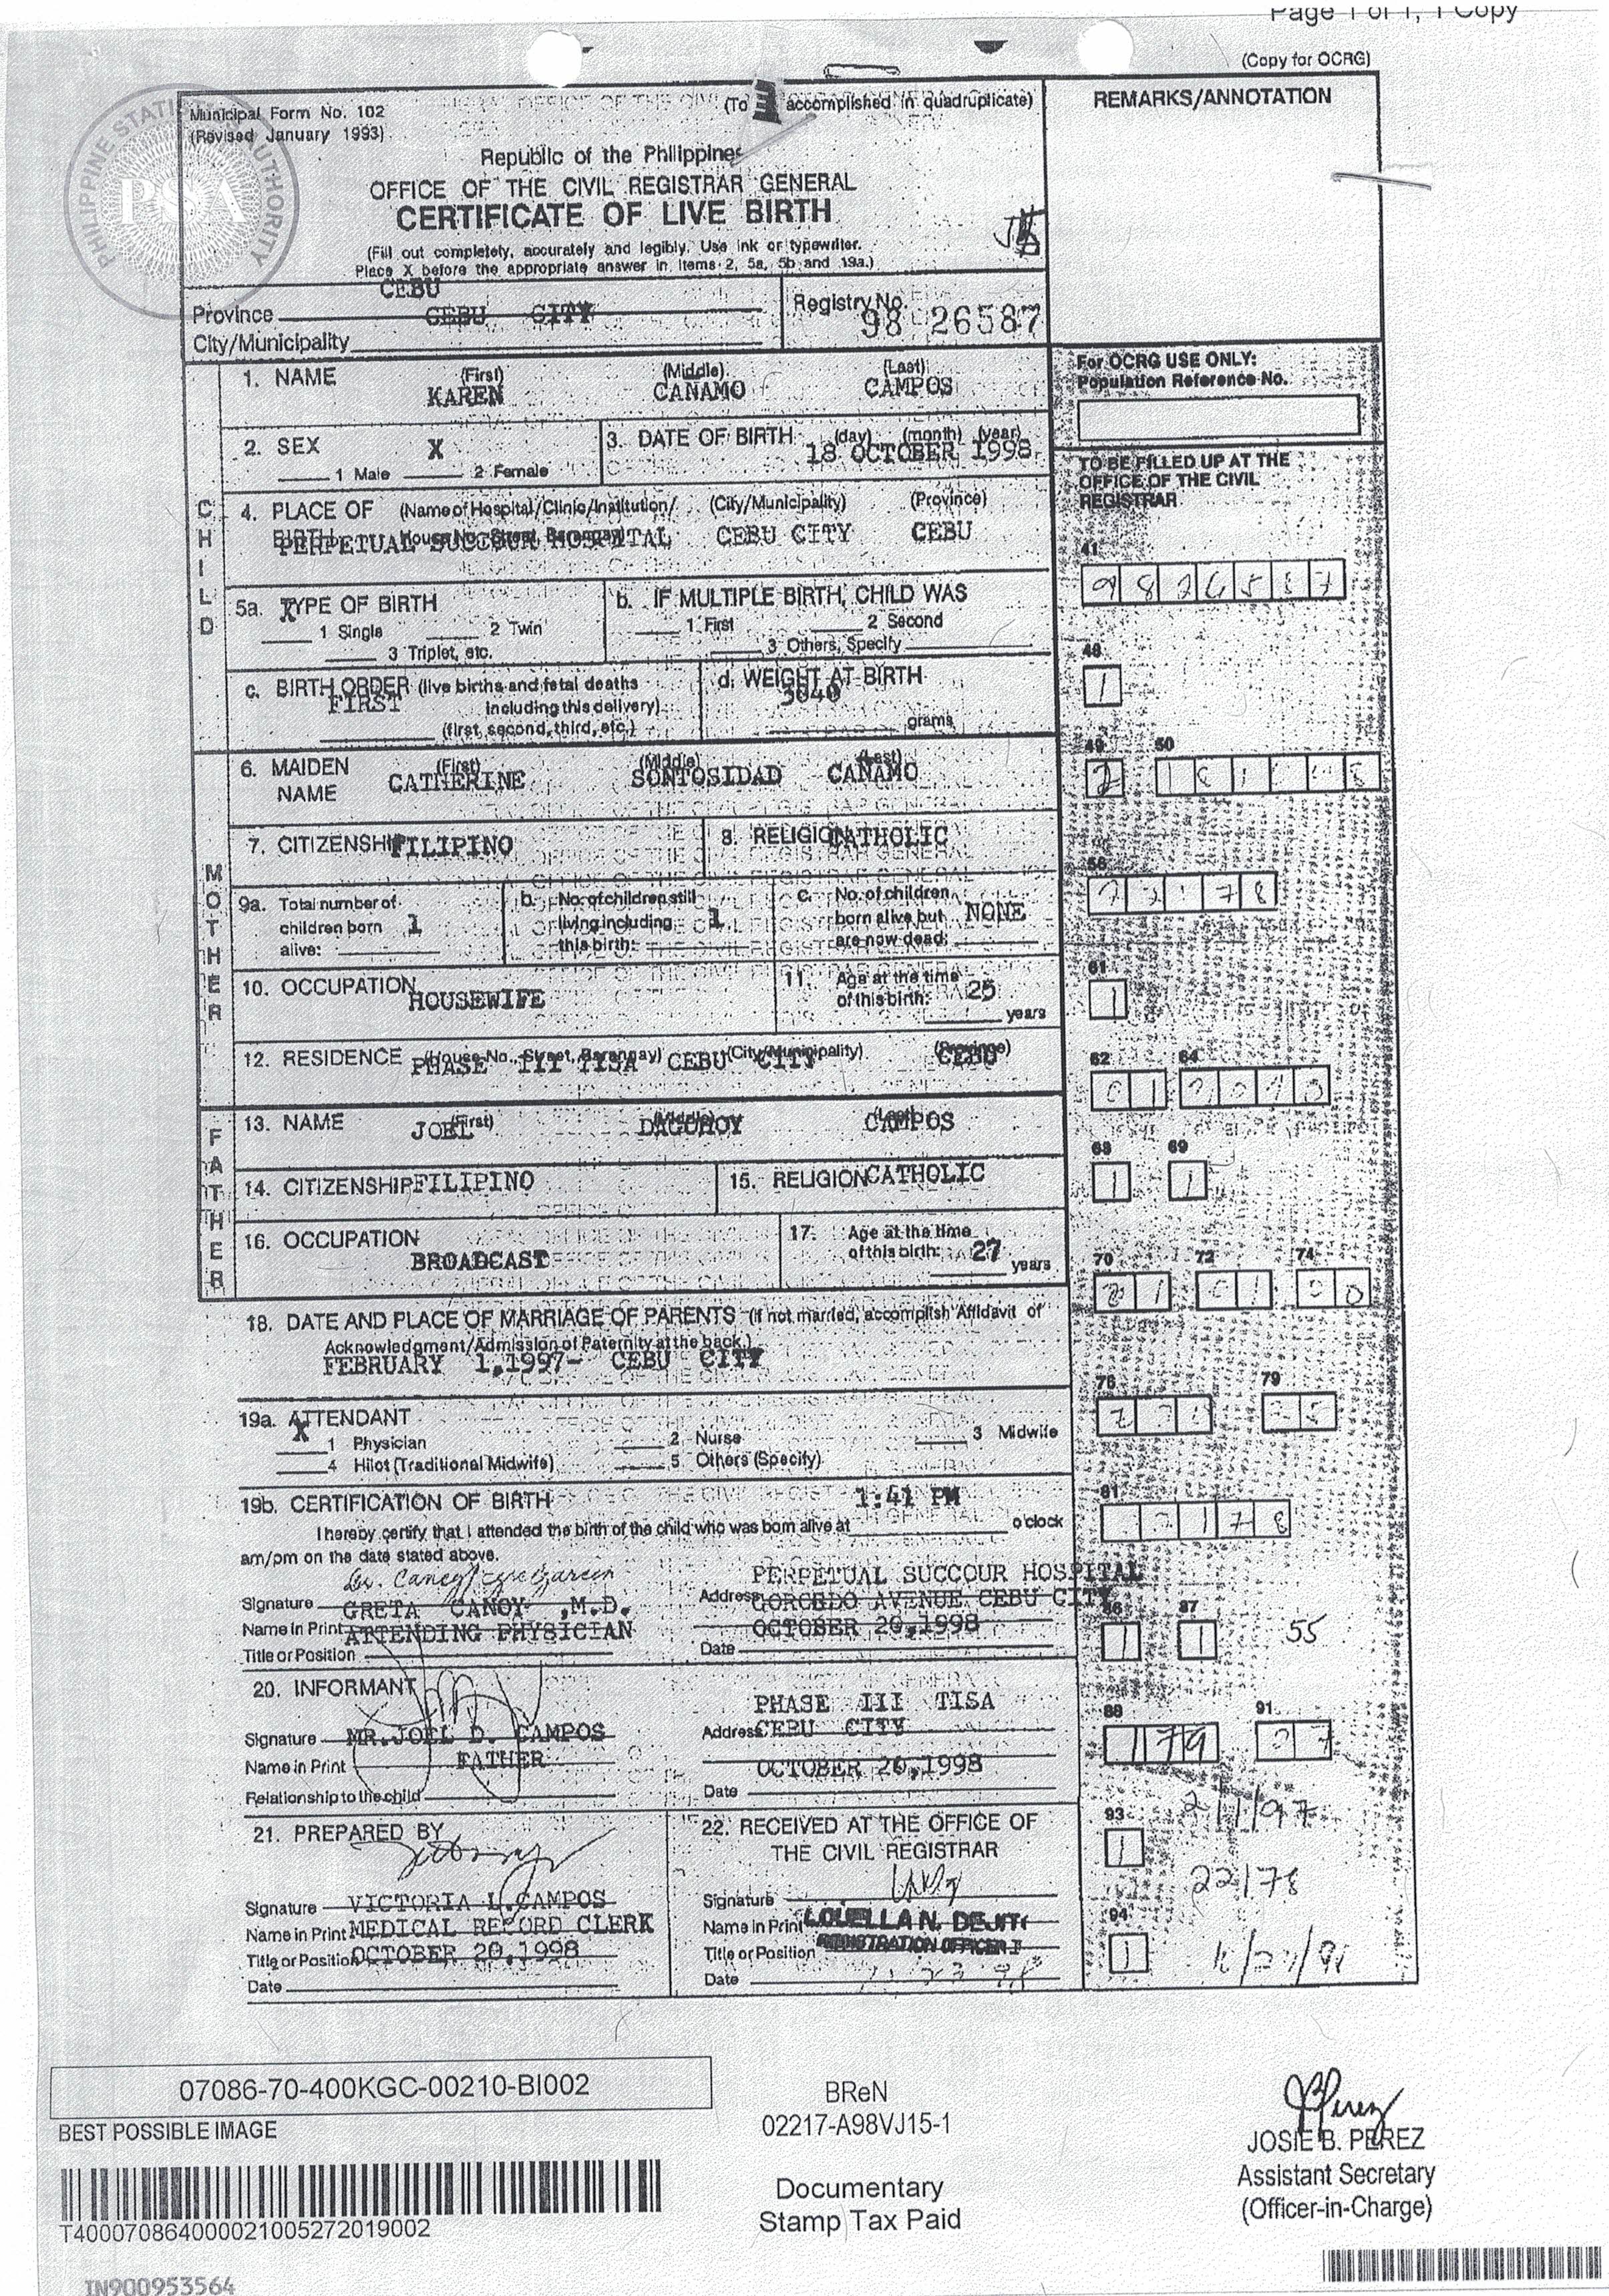 Page 1 of 1, 1 Copy
(Copy for OCRG)
Municipal Form No. 102
(Revised January 1993)
(To accomplished in quadruplicate)
Republic of the Philippines
OFFICE OF THE CIVIL REGISTRAR GENERAL
CERTIFICATE OF LIVE BIRTH
(Fill out completely, accurately and legibly. Use ink or typewriter.
Place X before the appropriate answer in items 2, 5a, 5b and 19a.)
REMARKS/ANNOTATION
PHILIPPINE STATISTICS AUTHORITY
PSA
CEBU
Province CEBU CITY
City/Municipality
Registry No.
98 26587
For OCRG USE ONLY:
Population Reference No.
CHILD
1. NAME (First) (Middle) (Last)
KAREN CANAMO CAMPOS
2. SEX X
1 Male 2 Female
3. DATE OF BIRTH (day) (month) (year)
18 OCTOBER 1998
TO BE FILLED UP AT THE
OFFICE OF THE CIVIL
REGISTRAR
4. PLACE OF BIRTH (Name of Hospital/Clinic/Institution/ (City/Municipality) (Province)
House No., Street, Barangay)
PERPETUAL SUCCOUR HOSPITAL CEBU CITY CEBU
41
5a. TYPE OF BIRTH
X
1 Single 2 Twin
3 Triplet, etc.
b. IF MULTIPLE BIRTH, CHILD WAS
1 First 2 Second
3 Others, Specify
48
1
c. BIRTH ORDER (live births and fetal deaths
FIRST including this delivery)
(first, second, third, etc.)
d. WEIGHT AT BIRTH
3040
grams
MOTHER
6. MAIDEN NAME (First) (Middle) (Last)
CATHERINE SONTOSIDAD CANAMO
49 50
2
7. CITIZENSHIP FILIPINO
8. RELIGION CATHOLIC
56
9a. Total number of
children born 1
alive:
b. No. of children still
living including 1
this birth:
c. No. of children
born alive but NONE
are now dead:
10. OCCUPATION
HOUSEWIFE
11. Age at the time
of this birth: 25
years
61
1
12. RESIDENCE (House No., Street, Barangay) (City/Municipality) (Province)
PHASE III TISA CEBU CITY CEBU
62 64
FATHER
13. NAME (First) (Middle) (Last)
JOEL DAGOHOY CAMPOS
68 69
1 1
14. CITIZENSHIP FILIPINO
15. RELIGION CATHOLIC
16. OCCUPATION
BROADCAST
17. Age at the time
of this birth: 27
years
70 72 74
21 01 00
18. DATE AND PLACE OF MARRIAGE OF PARENTS (If not married, accomplish Affidavit of
Acknowledgment/Admission of Paternity at the back.)
FEBRUARY 1,1997- CEBU CITY
76 79
25
19a. ATTENDANT
X
1 Physician 2 Nurse 3 Midwife
4 Hilot (Traditional Midwife) 5 Others (Specify)
19b. CERTIFICATION OF BIRTH 1:41 PM
I hereby certify that I attended the birth of the child who was born alive at o'clock
am/pm on the date stated above.
81
Signature
GRETA CANOY ,M.D.
Name in Print
ATTENDING PHYSICIAN
Title or Position
PERPETUAL SUCCOUR HOSPITAL
Address GORORDO AVENUE CEBU CITY
OCTOBER 20,1998
Date
86 87
1 1
55
20. INFORMANT
Signature
MR.JOEL D. CAMPOS
Name in Print
FATHER
Relationship to the child
PHASE III TISA
Address CEBU CITY
OCTOBER 20,1998
Date
88 91
179 27
2/1/97
21. PREPARED BY
Signature
VICTORIA L.CAMPOS
Name in Print
MEDICAL RECORD CLERK
Title or Position
OCTOBER 20,1998
Date
22. RECEIVED AT THE OFFICE OF
THE CIVIL REGISTRAR
Signature
Name in Print LOUELLA N. DEJITO
Title or Position REGISTRATION OFFICER I
Date
93
1
22178
94
1
07086-70-400KGC-00210-BI002
BEST POSSIBLE IMAGE
T400070864000021005272019002
IN900953564
BReN
02217-A98VJ15-1
Documentary
Stamp Tax Paid
JOSIE B. PEREZ
Assistant Secretary
(Officer-in-Charge)